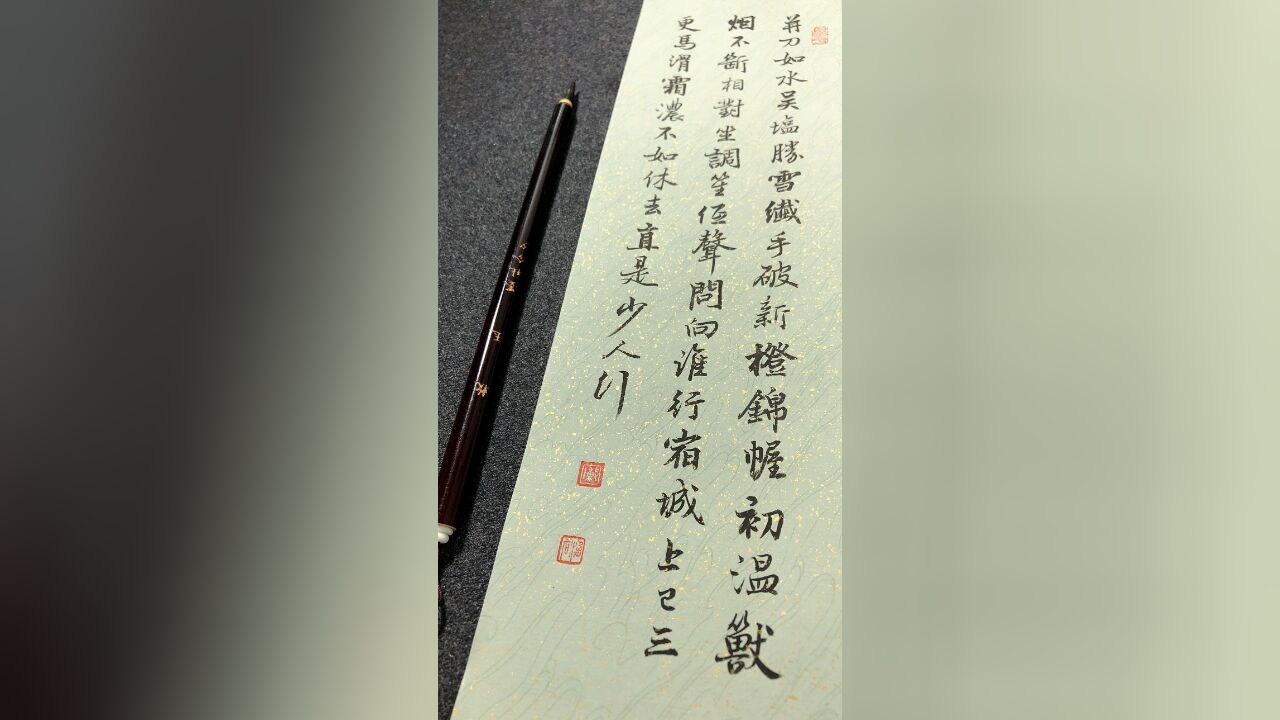 并刀如水吴塩勝雪纖手破新橙錦幄初温獸
烟不斷相對坐調笙低聲問向誰行宿城上已三
更馬滑霜濃不如休去直是少人行